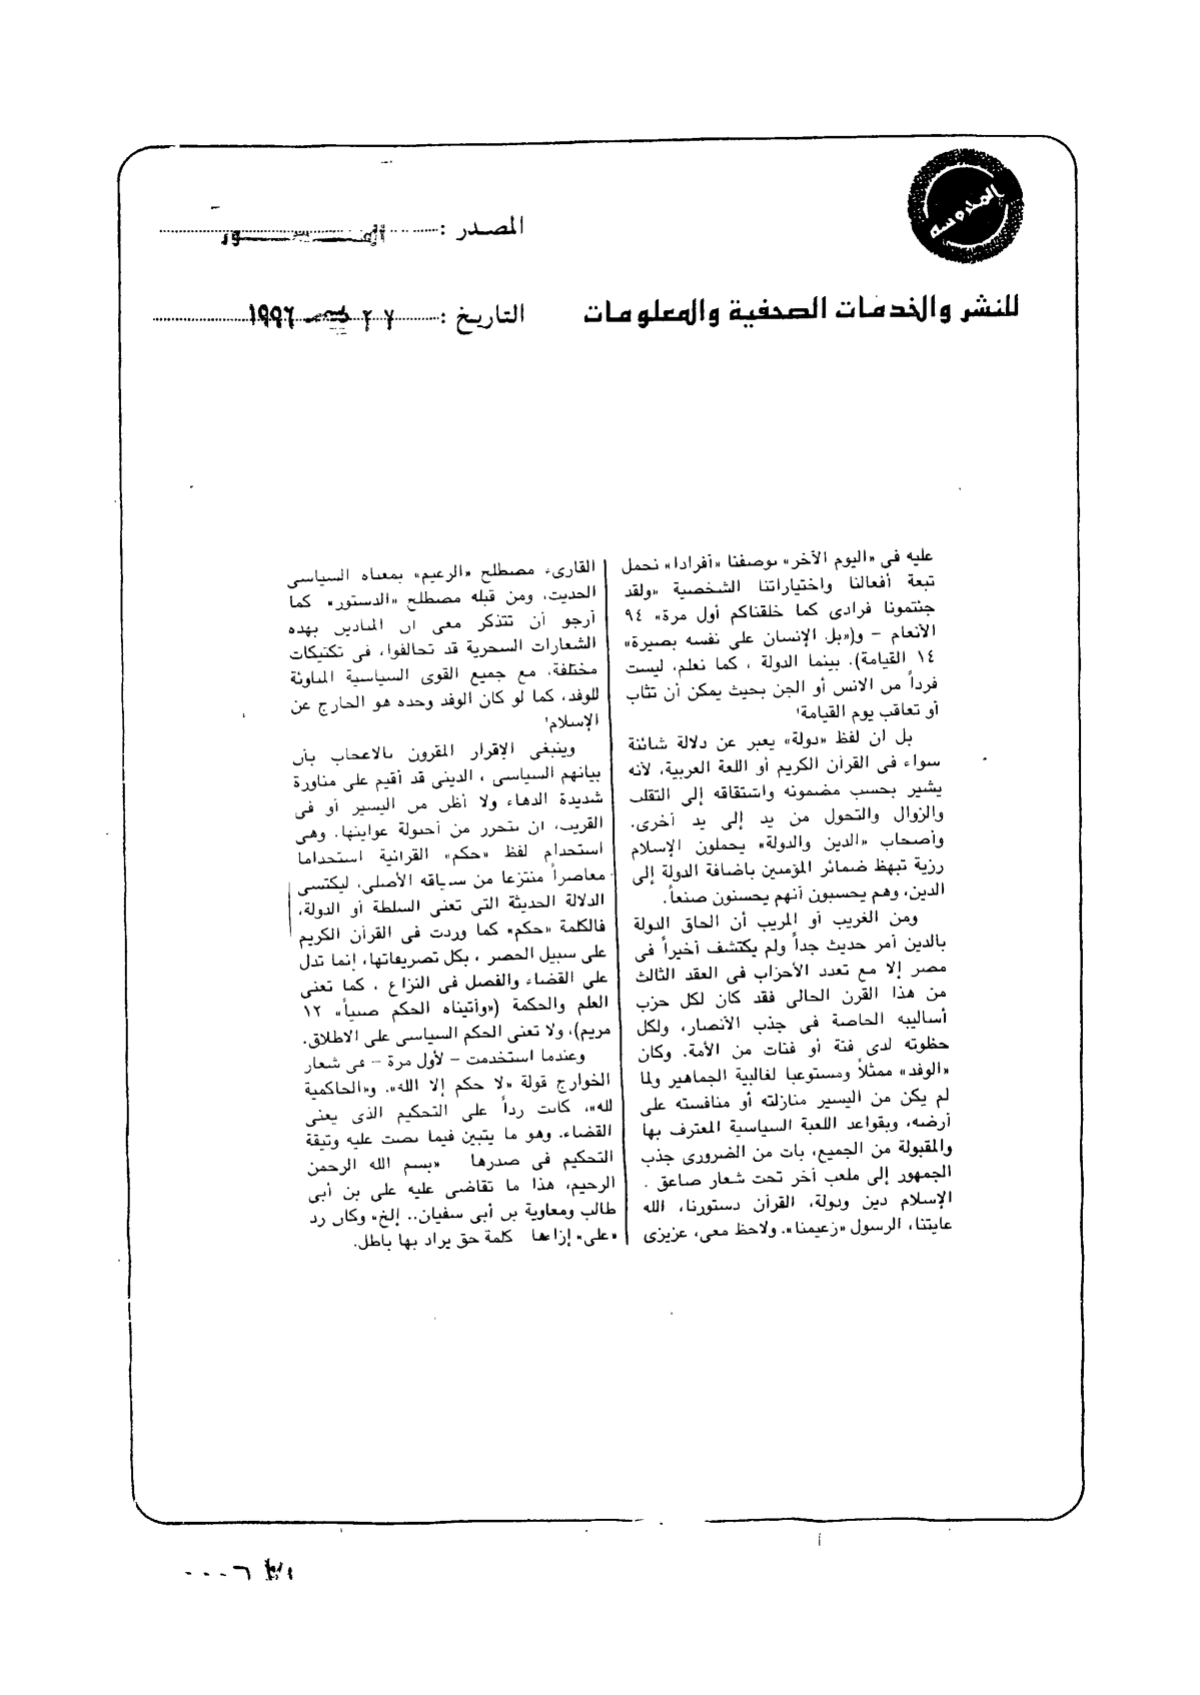 المحروسه
المصدر :
للنشر والخدمات الصحفية والمعلومات
التاريخ : ٢٧ ديسمبر ١٩٩٦
عليه فى «اليوم الآخر» بوصفنا «أفرادا» نحمل
تبعة أفعالنا واختياراتنا الشخصية «ولقد
جئتمونا فرادى كما خلقناكم أول مرة» ٩٤
الأنعام – و(«بل الإنسان على نفسه بصيرة»
١٤ القيامة). بينما الدولة ، كما نعلم، ليست
فرداً من الانس أو الجن بحيث يمكن أن تثاب
أو تعاقب يوم القيامة!
بل ان لفظ «دولة» يعبر عن دلالة شائنة
سواء فى القرآن الكريم أو اللغة العربية، لأنه
يشير بحسب مضمونه واشتقاقه إلى التقلب
والزوال والتحول من يد إلى يد أخرى.
وأصحاب «الدين والدولة» يحملون الإسلام
رزية تبهظ ضمائر المؤمنين باضافة الدولة إلى
الدين، وهم يحسبون أنهم يحسنون صنعاً.
ومن الغريب أو المريب أن الحاق الدولة
بالدين أمر حديث جداً ولم يكتشف أخيراً فى
مصر إلا مع تعدد الأحزاب فى العقد الثالث
من هذا القرن الحالى فقد كان لكل حزب
أساليبه الخاصة فى جذب الأنصار، ولكل
حظوته لدى فئة أو فئات من الأمة. وكان
«الوفد» ممثلاً ومستوعبا لغالبية الجماهير ولما
لم يكن من اليسير منازلته أو منافسته على
أرضه، وبقواعد اللعبة السياسية المعترف بها
والمقبولة من الجميع، بات من الضرورى جذب
الجمهور إلى ملعب آخر تحت شعار صاعق .
الإسلام دين ودولة، القرآن دستورنا، الله
غايتنا، الرسول «زعيمنا». ولاحظ معى، عزيزى
القارىء مصطلح «الزعيم» بمعناه السياسى
الحديث، ومن قبله مصطلح «الدستور» كما
أرجو أن تتذكر معى ان المنادين بهذه
الشعارات السحرية قد تحالفوا، فى تكنيكات
مختلفة، مع جميع القوى السياسية المناوئة
للوفد، كما لو كان الوفد وحده هو الخارج عن
الإسلام!
وينبغى الإقرار المقرون بالاعجاب بأن
بيانهم السياسى ، الدينى قد أقيم على مناورة
شديدة الدهاء ولا أظن من اليسير أو فى
القريب، ان نتحرر من أحبولة غوايتها. وهى
استخدام لفظ «حكم» القرآنية استخداما
معاصراً منتزعا من سياقه الأصلى، ليكتسى
الدلالة الحديثة التى تعنى السلطة أو الدولة،
فالكلمة «حكم» كما وردت فى القرآن الكريم
على سبيل الحصر ، بكل تصريفاتها، إنما تدل
على القضاء والفصل فى النزاع ، كما تعنى
العلم والحكمة («وآتيناه الحكم صبياً» ١٢
مريم)، ولا تعنى الحكم السياسى على الاطلاق.
وعندما استخدمت – لأول مرة – فى شعار
الخوارج قولة «لا حكم إلا الله». و«الحاكمية
لله»، كانت رداً على التحكيم الذى يعنى
القضاء. وهو ما يتبين فيما نصت عليه وثيقة
التحكيم فى صدرها «بسم الله الرحمن
الرحيم، هذا ما تقاضى عليه على بن أبى
طالب ومعاوية بن أبى سفيان.. إلخ» وكان رد
«على» إزاءها كلمة حق يراد بها باطل.